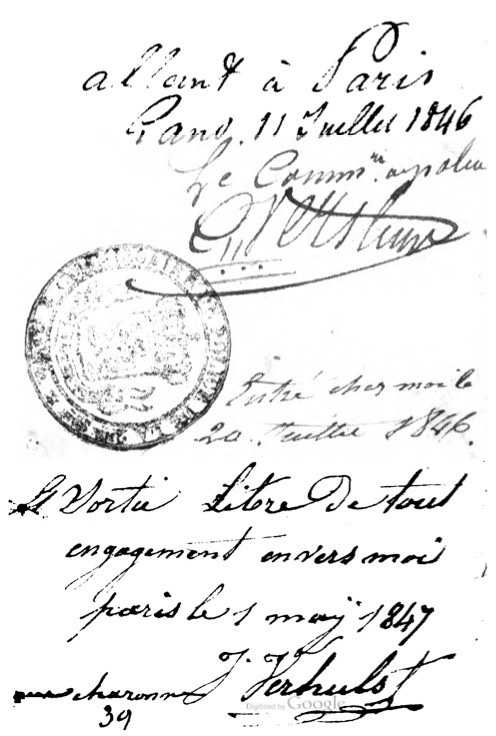 allant à Paris
Gand. 11 Juillet 1846
Le Comm.re de police
Entré chez moi le
20 Juillet 1846.
Et Sortie Libre De tout
engagement envers moi
paris le 1 may 1847
J. Verhulst
charonne
39
Digitized by Google